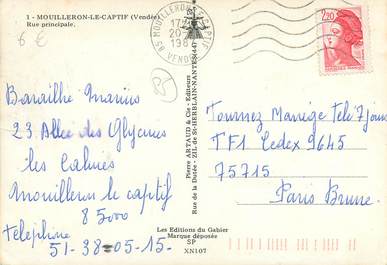 1 - MOUILLERON-LE-CAPTIF (Vendée)
Rue principale.
6 €
85 MOUILLERON LE CAPTIF
17
20
198
VENDÉE
2,20
85
Barailhe Marius
23 Allee des Glycines
les Calines
Mouilleron le captif
85000
Telephone
51-38-05-15-
Pierre ARTAUD & Cie - Editeurs
Rue de la Dutée - ZIL de St-HERBLAIN-NANTES (44)
Tournez Manège Tele 7 Jours
TF1 Cedex 9645
75715
Paris Brune.
Les Editions du Gabier
Marque déposée
SP
XN107